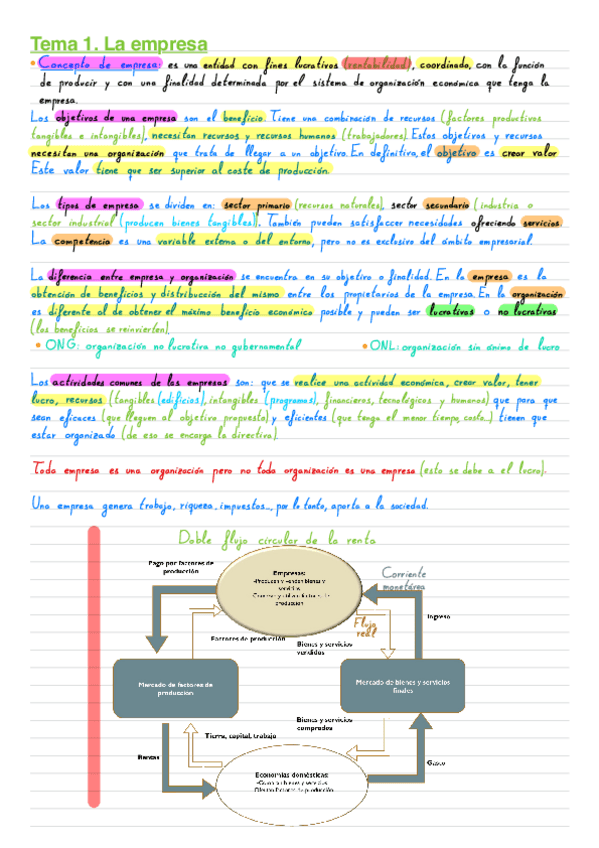 Tema 1. La empresa
• Concepto de empresa: es una entidad con fines lucrativos (rentabilidad), coordinado, con la función
de producir y con una finalidad determinada por el sistema de organización económica que tenga la
empresa.
Los objetivos de una empresa son el beneficio. Tiene una combinación de recursos (factores productivos
tangibles e intangibles), necesitan recursos y recursos humanos (trabajadores). Estos objetivos y recursos
necesitan una organización que trata de llegar a un objetivo. En definitiva, el objetivo es crear valor
Este valor tiene que ser superior al coste de producción.
Los tipos de empresa se dividen en: sector primario (recursos naturales), sector secundario (industria o
sector industrial (producen bienes tangibles). También pueden satisfaccer necesidades ofreciendo servicios.
La competencia es una variable externa o del entorno, pero no es exclusivo del ámbito empresarial.
La diferencia entre empresa y organización se encuentra en su objetivo o finalidad. En la empresa es la
obtención de beneficios y distribución del mismo entre los propietarios de la empresa. En la organización
es diferente al de obtener el máximo beneficio económico posible y pueden ser lucrativas o no lucrativas
(los beneficios se reinvierten).
• ONG: organización no lucrativa no gubernamental • ONL: organización sin ánimo de lucro
Las actividades comunes de las empresas son: que se realice una actividad económica, crear valor, tener
lucro, recursos (tangibles (edificios), intangibles (programas), financieros, tecnológicos y humanos) que para que
sean eficaces (que lleguen al objetivo propuesto) y eficientes (que tenga el menor tiempo, coste...) tienen que
estar organizado (de eso se encarga la directiva).
Toda empresa es una organización pero no toda organización es una empresa (esto se debe a el lucro).
Una empresa genera trabajo, riqueza, impuestos..., por lo tanto, aporta a la sociedad.
Doble flujo circular de la renta
Pago por factores de
producción
Empresas:
-Producen y venden bienes y
servicios
factores de
producción
Corriente
monetaria
Ingreso
Flujo
real
Factores de producción
Bienes y servicios
vendidos
Mercado de factores de
producción
Mercado de bienes y servicios
finales
Bienes y servicios
comprados
Tierra, capital, trabajo
Rentas
Gasto
Economías domésticas:
bienes y servicios
factores de producción